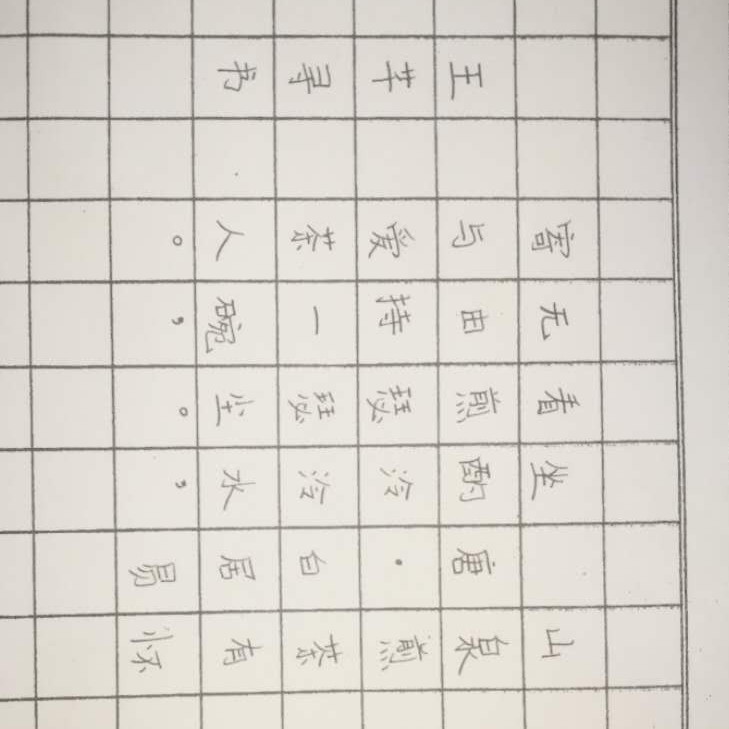 山泉煎茶有怀
唐·白居易
坐酌泠泠水，
看煎瑟瑟尘。
无由持一碗，
寄与爱茶人。
王芊寻书